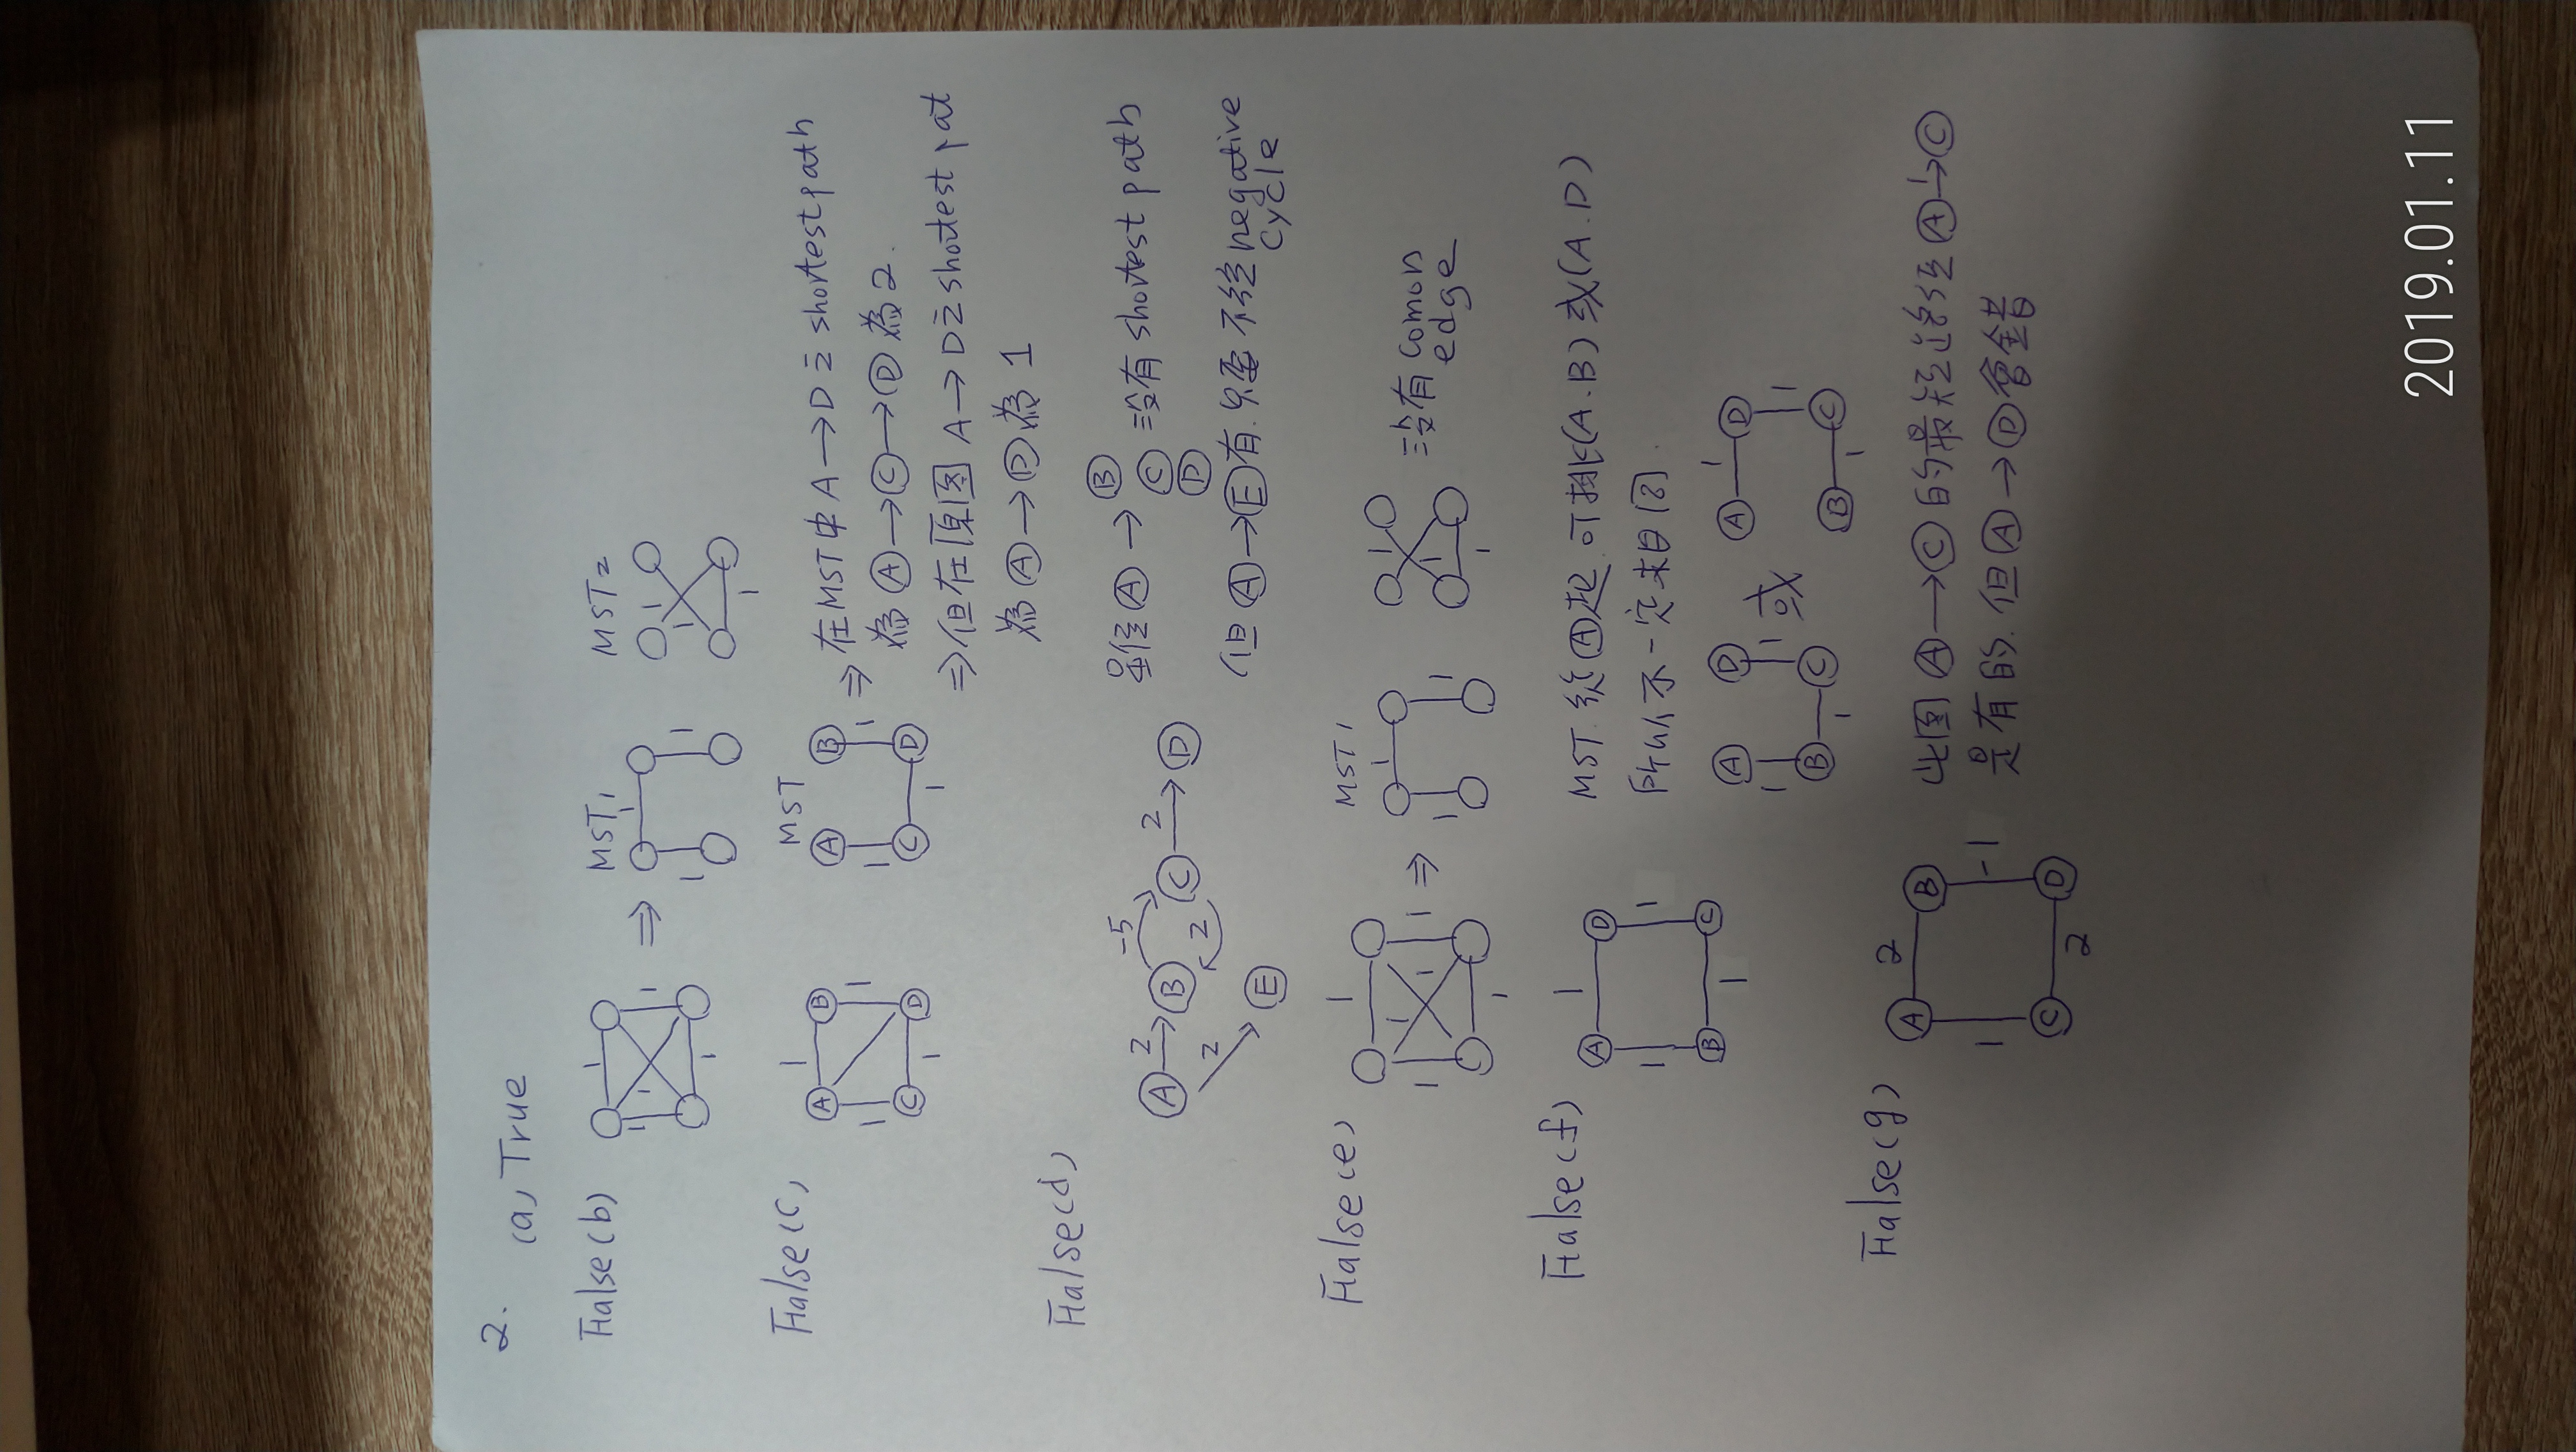 2.
(a) True
False (b)
1
1
1
1
1
⇒
MST1
1
1
1
MST2
1
1
1
False (c)
1
A B
1
1
C D
1
MST
A B
1
1
C D
1
⇒ 在MST中 A→D之 shortest path
為 A→C→D 為2.
⇒但在原图 A→D之shortest pat
為 A→D 為 1
False (d)
A 2 B -5 C 2 D
2
2
E
A → B
C 沒有 shortest path
D
但 A→E有. 只要 不 negative
cycle
False (e)
1
1
1
1
1
1
⇒
MST1
1
1
1
1
1
1
沒有 comon
edge
False (f)
1
A D
1
1
B C
1
MST A起 可挑(A.B) 或(A.D)
所以不一定相同.
A D
1
1
B C
1
或
A 1 D
1
B C
1
False (g)
2
A B
1
-1
C D
2
此图 A→C 的最短路径 A 1→ C
是有的. 但 A→D會錯
2019.01.11